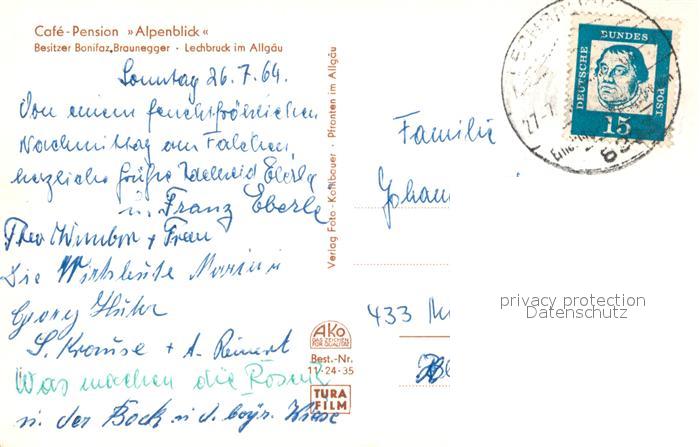 Café-Pension »Alpenblick«
Besitzer Bonifaz Braunegger · Lechbruck im Allgäu
Sonntag 26.7.64.
Von einem feuchtfröhlichen
Nachmittag am
herzliche Grüße Eberle
u. Franz Eberle
Theo + Frau
Die Wirtsleute
Georg Huhr
S. Krause + A. Reinert
Was machen die
u. der Bock u. d. bayr. Wiese
Verlag Foto-Kohlbauer · Pfronten im Allgäu
AKO
Best.-Nr.
11-24-35
TURA
FILM
Familie
Johan
433
DEUTSCHE BUNDESPOST
15
27-7
privacy protection
Datenschutz